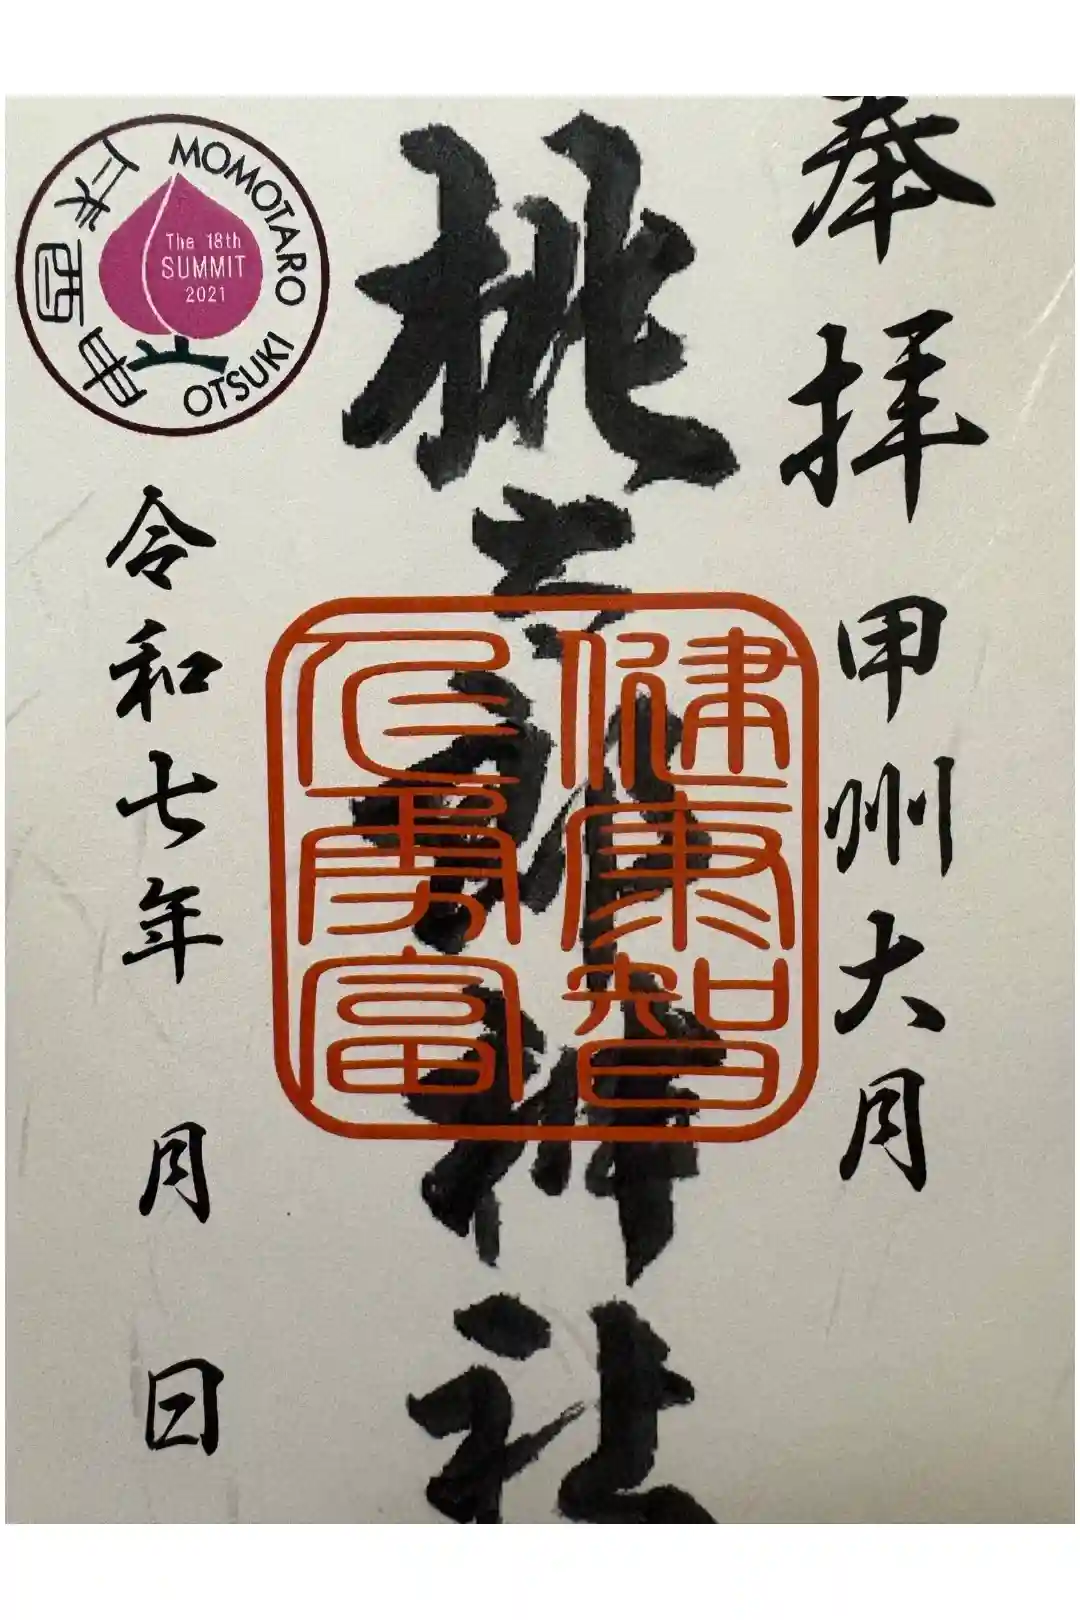 奉拝
甲州大月
桃太郎神社
健康智
勇富
令和七年 月 日
MOMOTARO OTSUKI
The 18th
SUMMIT
2021
酉申